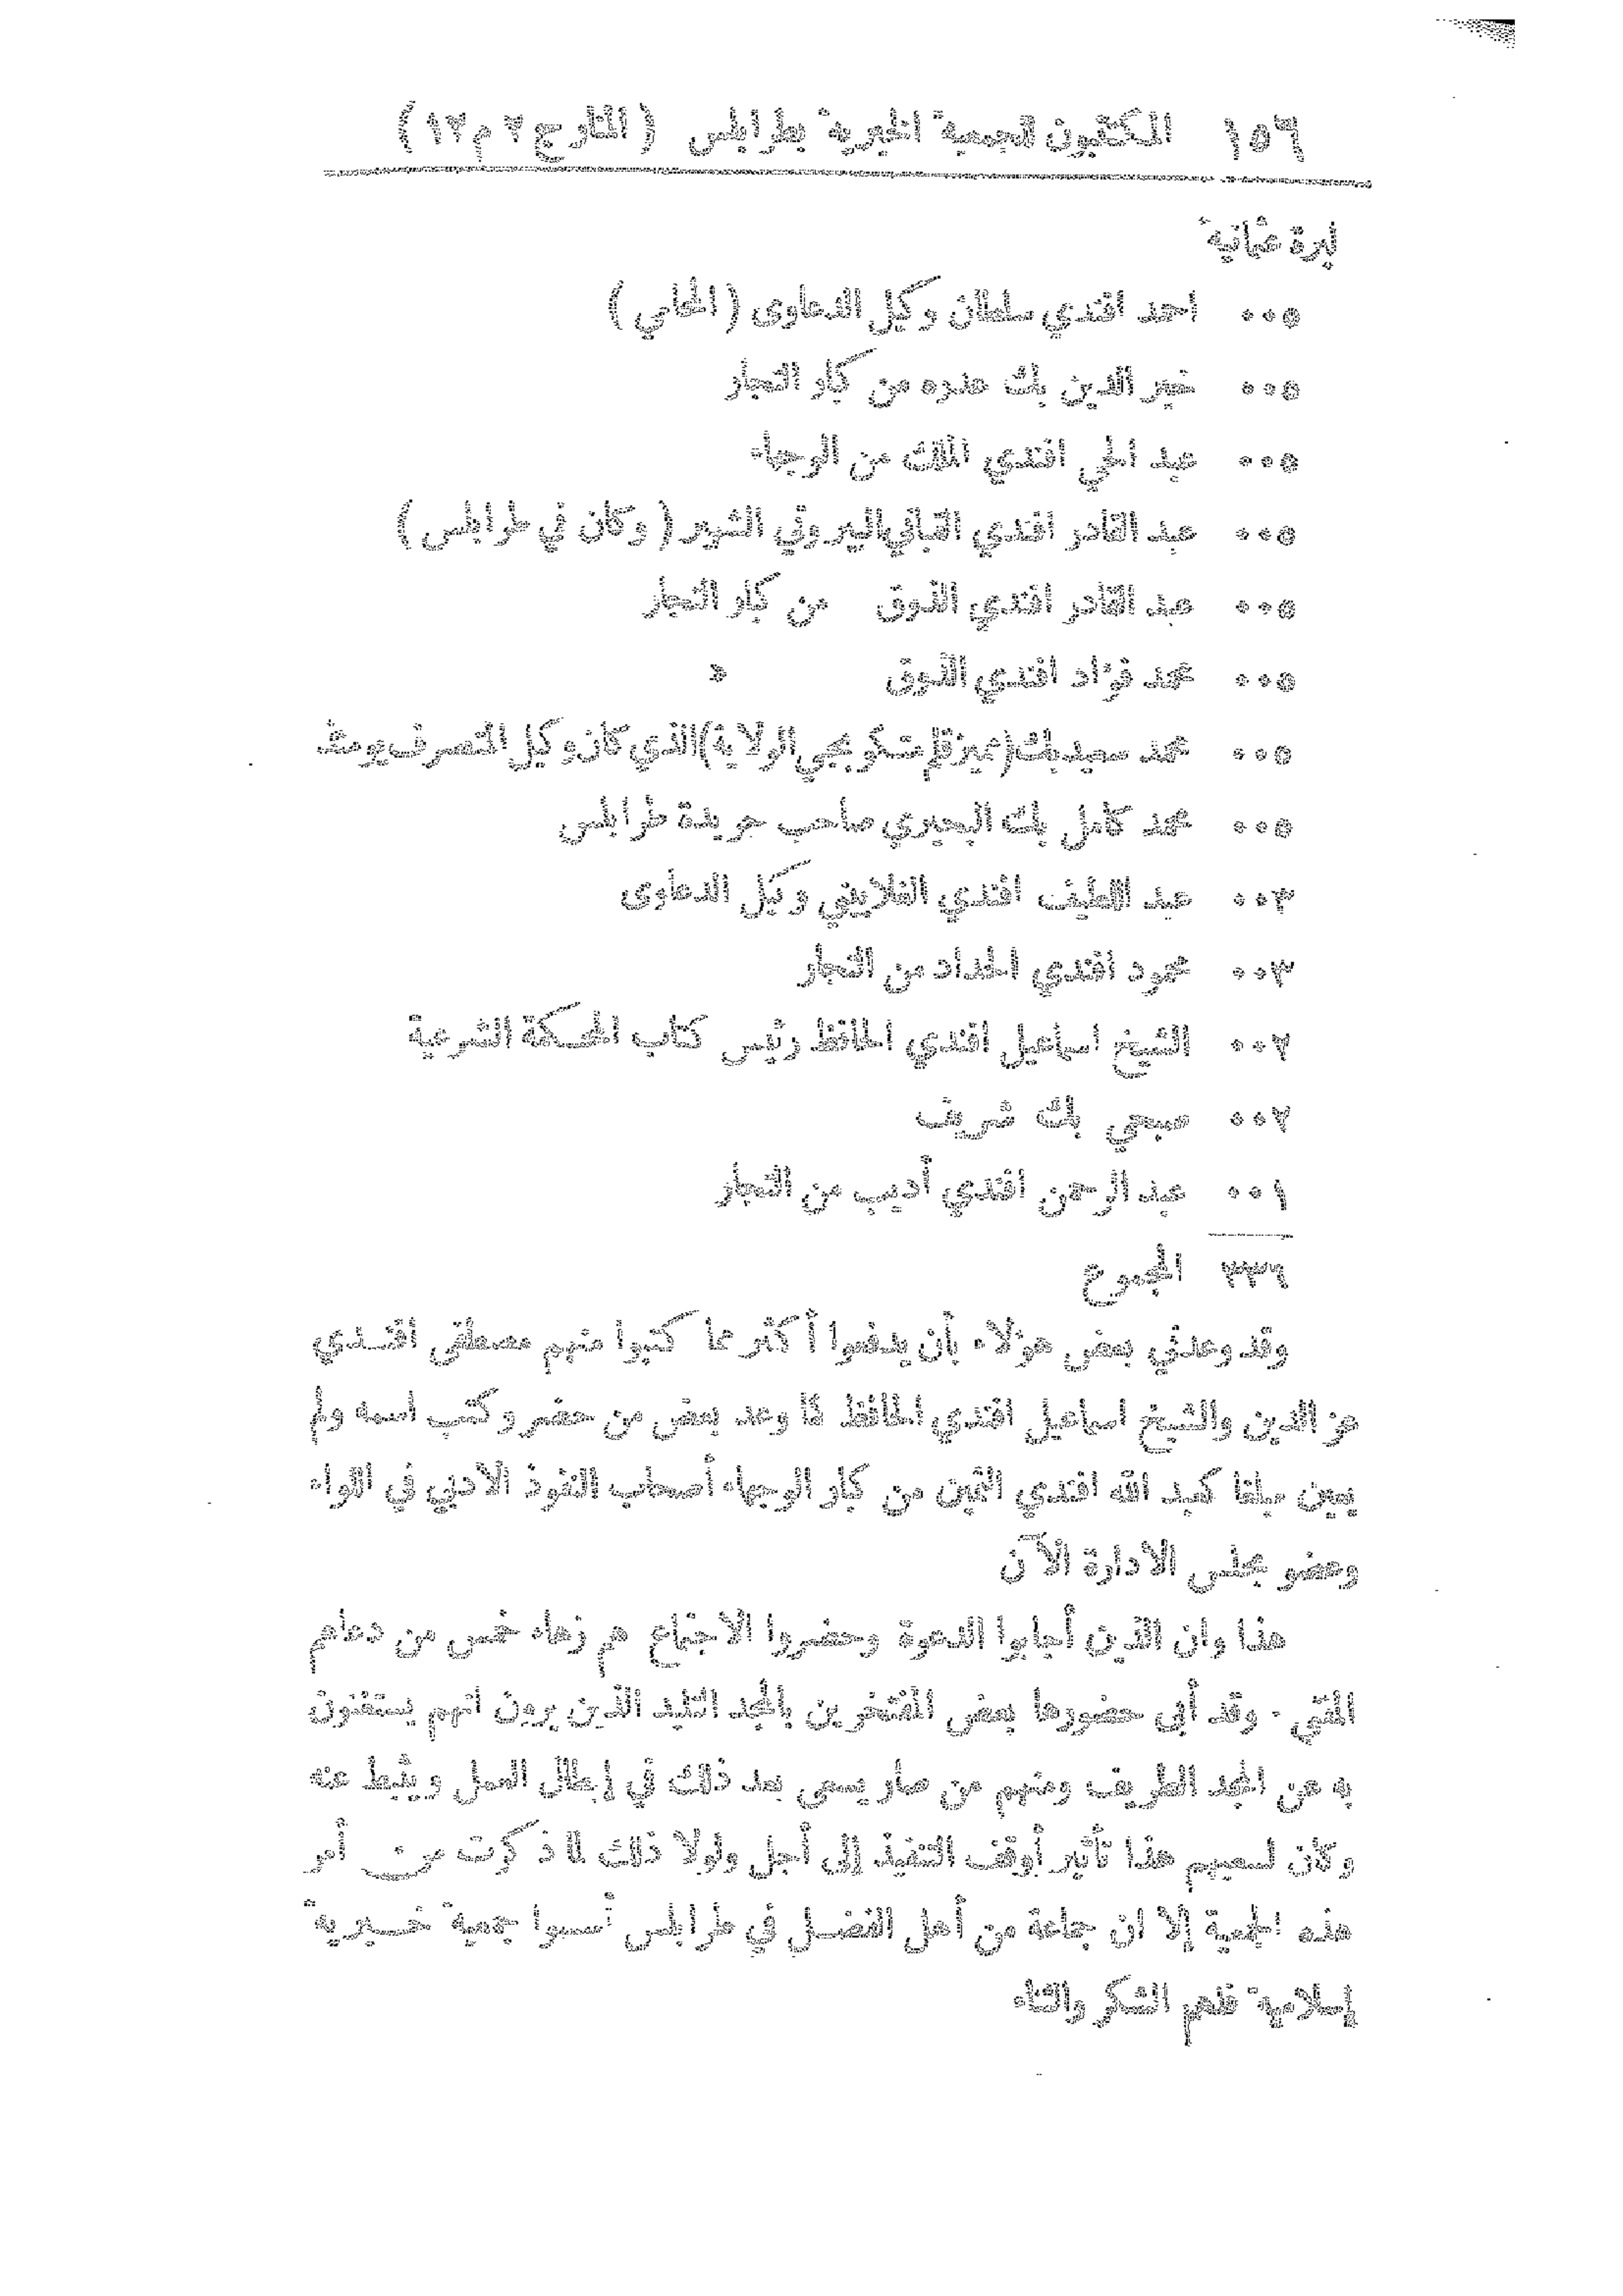 ١٥٦ المكتتبون للجمعية الخيرية بطرابلس ( المنار ج ٢ م ١٢ )
ليرة عثمانية
٠٠٥ احمد افندي سلطان وكيل الدعاوى ( المحامي )
٠٠٥ خير الدين بك عدره من كبار التجار
٠٠٥ عبد الحي افندي الملك من الوجهاء
٠٠٥ عبد القادر افندي القباني البيروتي الشهير ( وكان في طرابلس )
٠٠٥ عبد القادر افندي الذوق من كبار التجار
٠٠٥ محمد فؤاد افندي الذوق «
٠٠٥ محمد سعيد بك (مميز قلم مكتوبجي الولاية) الذي كان وكيل المتصرف يومئذ
٠٠٥ محمد كامل بك البحيري صاحب جريدة طرابلس
٠٠٣ عبد اللطيف افندي الغلاييني وكيل الدعاوى
٠٠٣ محمود افندي الحداد من التجار
٠٠٢ الشيخ اسماعيل افندي الحافظ رئيس كتاب المحكمة الشرعية
٠٠٢ صبحي بك شريف
٠٠١ عبد الرحمن افندي أديب من التجار
٣٣٦ المجموع
وقد وعدني بعض هؤلاء بأن يدفعوا أكثر مما كتبوا منهم مصطفى افندي
عز الدين والشيخ اسماعيل افندي الحافظ كما وعد بعض من حضر وكتب اسمه ولم
يعين مبلغا كعبد الله افندي الثمين من كبار الوجهاء أصحاب النفوذ الادبي في اللواء
وعضو مجلس الادارة الآن
هذا وان الذين أجابوا الدعوة وحضروا الاجتماع هم زهاء خمس من دعاهم
المفتي . وقد أبى حضورها بعض المفتخرين بالمجد التليد الذين يرون انهم يستغنون
به عن المجد الطريف ومنهم من صار يسعى بعد ذلك في إبطال العمل ويثبط عنه
وكان لسعيهم هذا تأثير أوقف التنفيذ إلى أجل ولولا ذلك لما ذكرت من أمر
هذه الجمعية إلا ان جماعة من أهل الفضل في طرابلس أسسوا جمعية خيرية
إسلامية فلهم الشكر والثناء